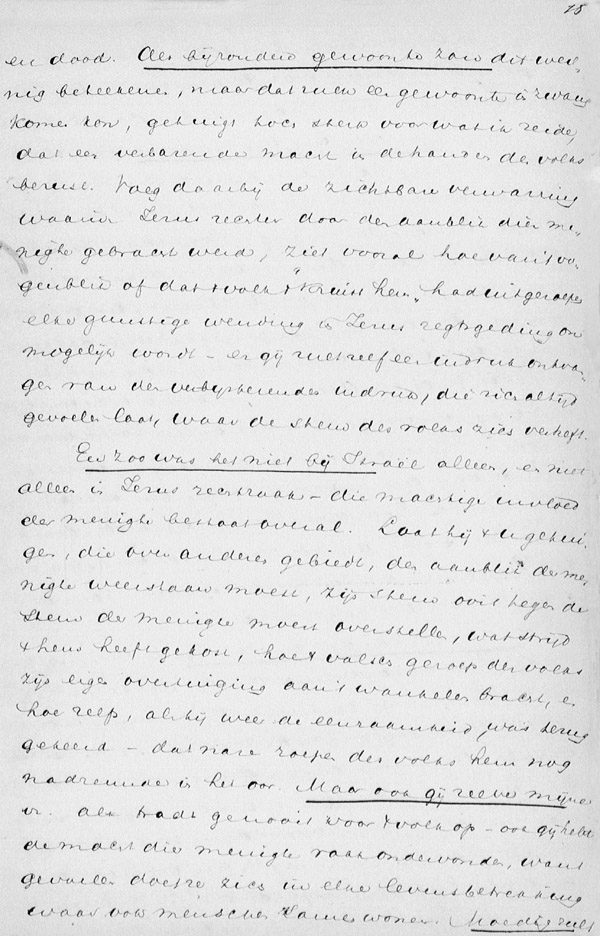 18
en dood. Als bijzondere gewoonte zou dit wei-
nig beteekenen, maar dat zulk een gewoonte in zwang
komen kon, getuigt hoe sterk voor wat ik zeide,
dat een verbazende macht in de handen der volks
berust. Voeg daarbij de zichtbare verwarring
waarin Jezus rechter door den aanblik dier me-
nigte gebracht werd, ziet vooral hoe van 't oo-
genblik af dat 't volk 't "Kruist hem" had uitgeroepen
elke gunstige wending in Jezus regtsgeding on
mogelijk wordt – en gij zult zelf een indruk ontvan-
gen van den verbijsterenden indruk, die zich altijd
gevoelen laat, waar de stem des volks zich verheft.
En zoo was het niet bij Israël alleen, en niet
alleen in Jezus rechtzaak – die machtige invloed
der menigte bestaat overal. Laat hij 't u getui-
gen, die over anderen gebiedt, den aanblik der me-
nigte weerstaan moest, zijn stem ooit tegen de
stem der menigte moest overstellen, wat strijd
't hem heeft gekost, hoe 't valsch geroep der volks
zijn eigen overtuiging aan 't wankelen bracht, en
hoe zelfs, als hij weer de eenzaamheid was terug
gekeerd – dat nare roepen des volks hem nog
nadreunde in het oor. Maar ook gij zelve mijne
vr. al tradt ge nooit voor 't volk op – ook gij hebt
de macht die menigte vaak ondervonden, want
gevoelen doet ze zich in elke levensbetrekking
waar ook menschen samen wonen. Moedig zult